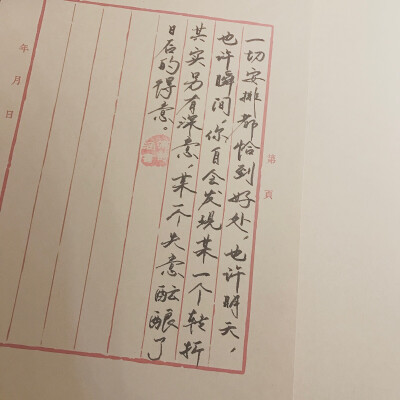 第 頁
一切安排都恰到好处，也许明天，
也许瞬间，你自会发现某一个转折
其实另有深意，某一个失意酝酿了
日后的得意。
年 月 日